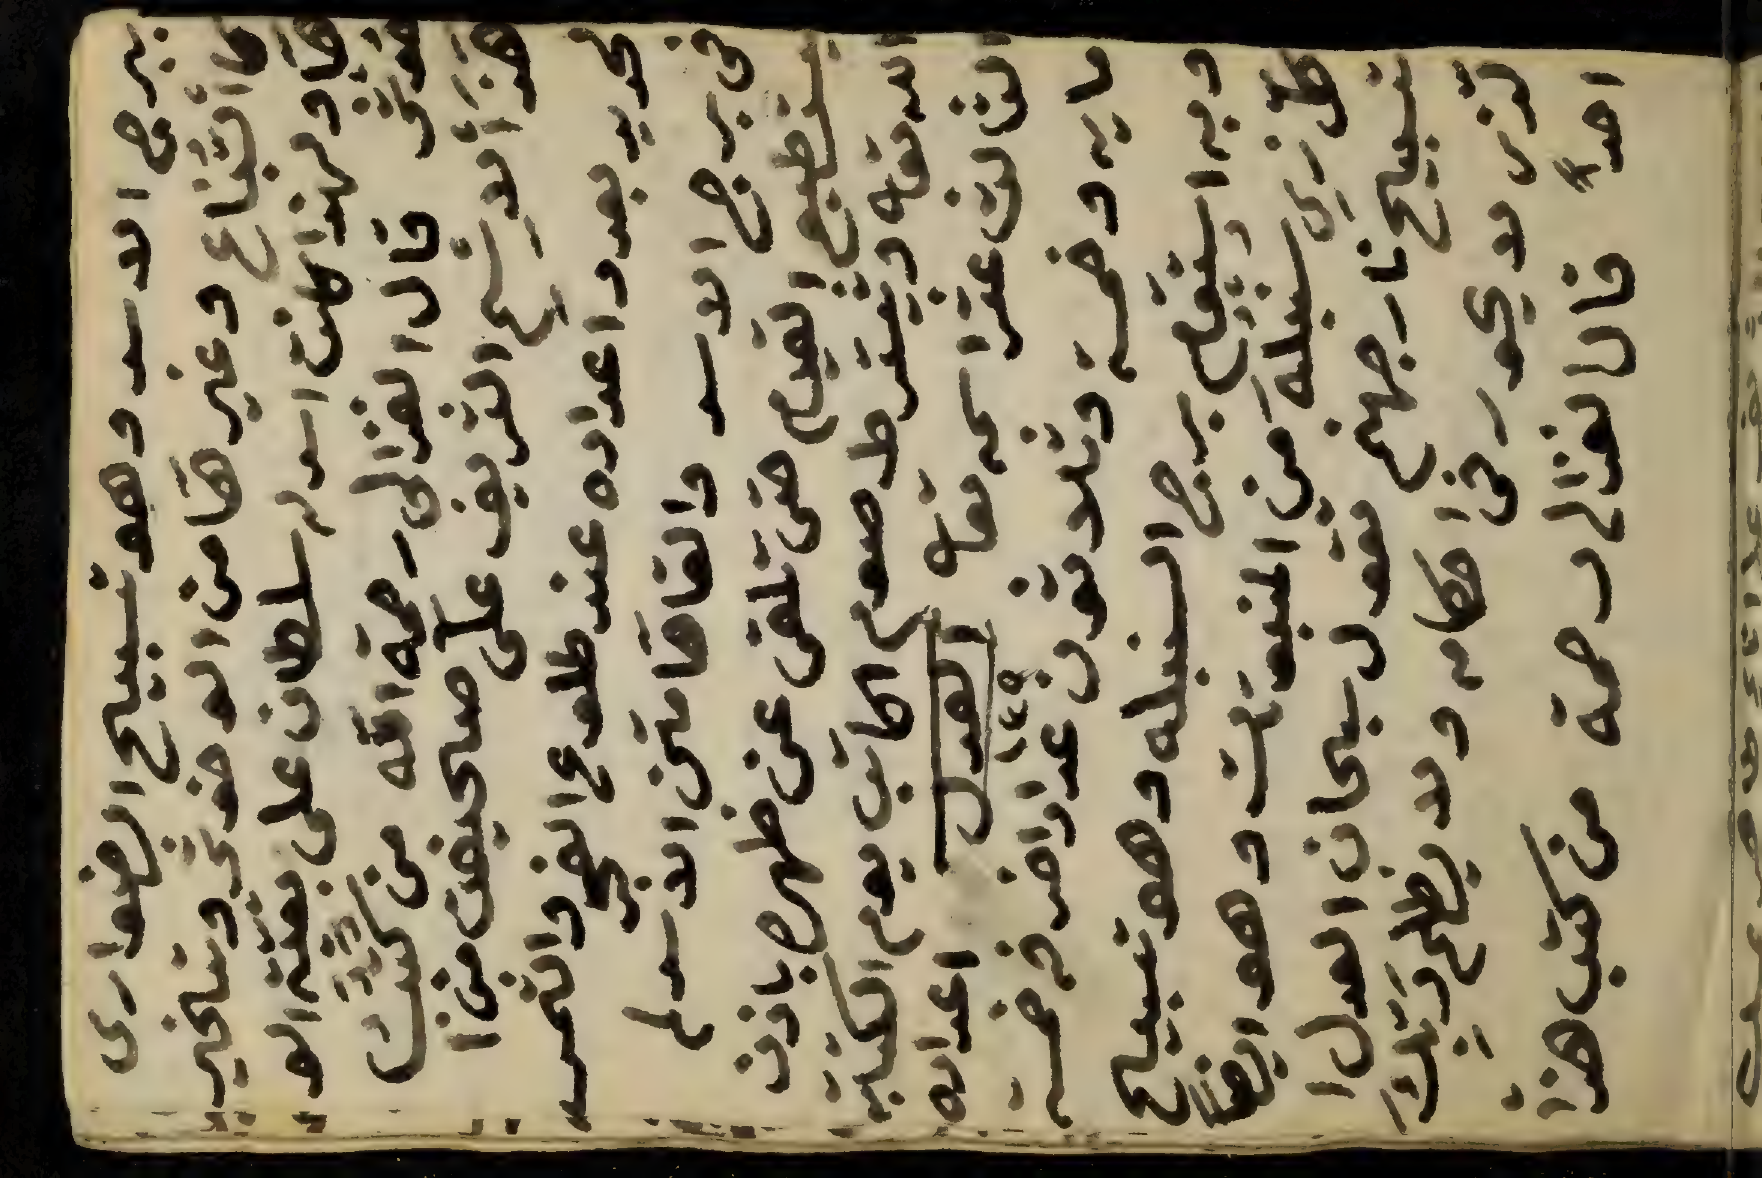 برج الاسد وهو تسبيح الضوارى
كالسباع وغيرها من الوحوش وتسخير
ها ولهذا كان اسد سلطان على بقية الو
حوش قال الغزالى رحمة الله من كتب
هذا الاسم الشريف على صحيفة من ا
لحديد بعد اعداده عند طلوع الفجر والشمس
فى برج الاسد
حتى تلقى عن ظهره باذن
الله تعالى ويشترط صوم الكاتب يوم الكتب
الثالث عشر اسمه تعالى العدل اعداده
مايه وخمسه وثلاثون
وبه استقام برج السنبله وهو تسبيح
كل ذى سنبله من النبات وهو ايضا
تسبيح نار جهنم تقول سبحان العدل ا
لذى لا يجور فى احكامه ولا يظلم ربك
احدا قال الغزالى رحمة من كتب هذا